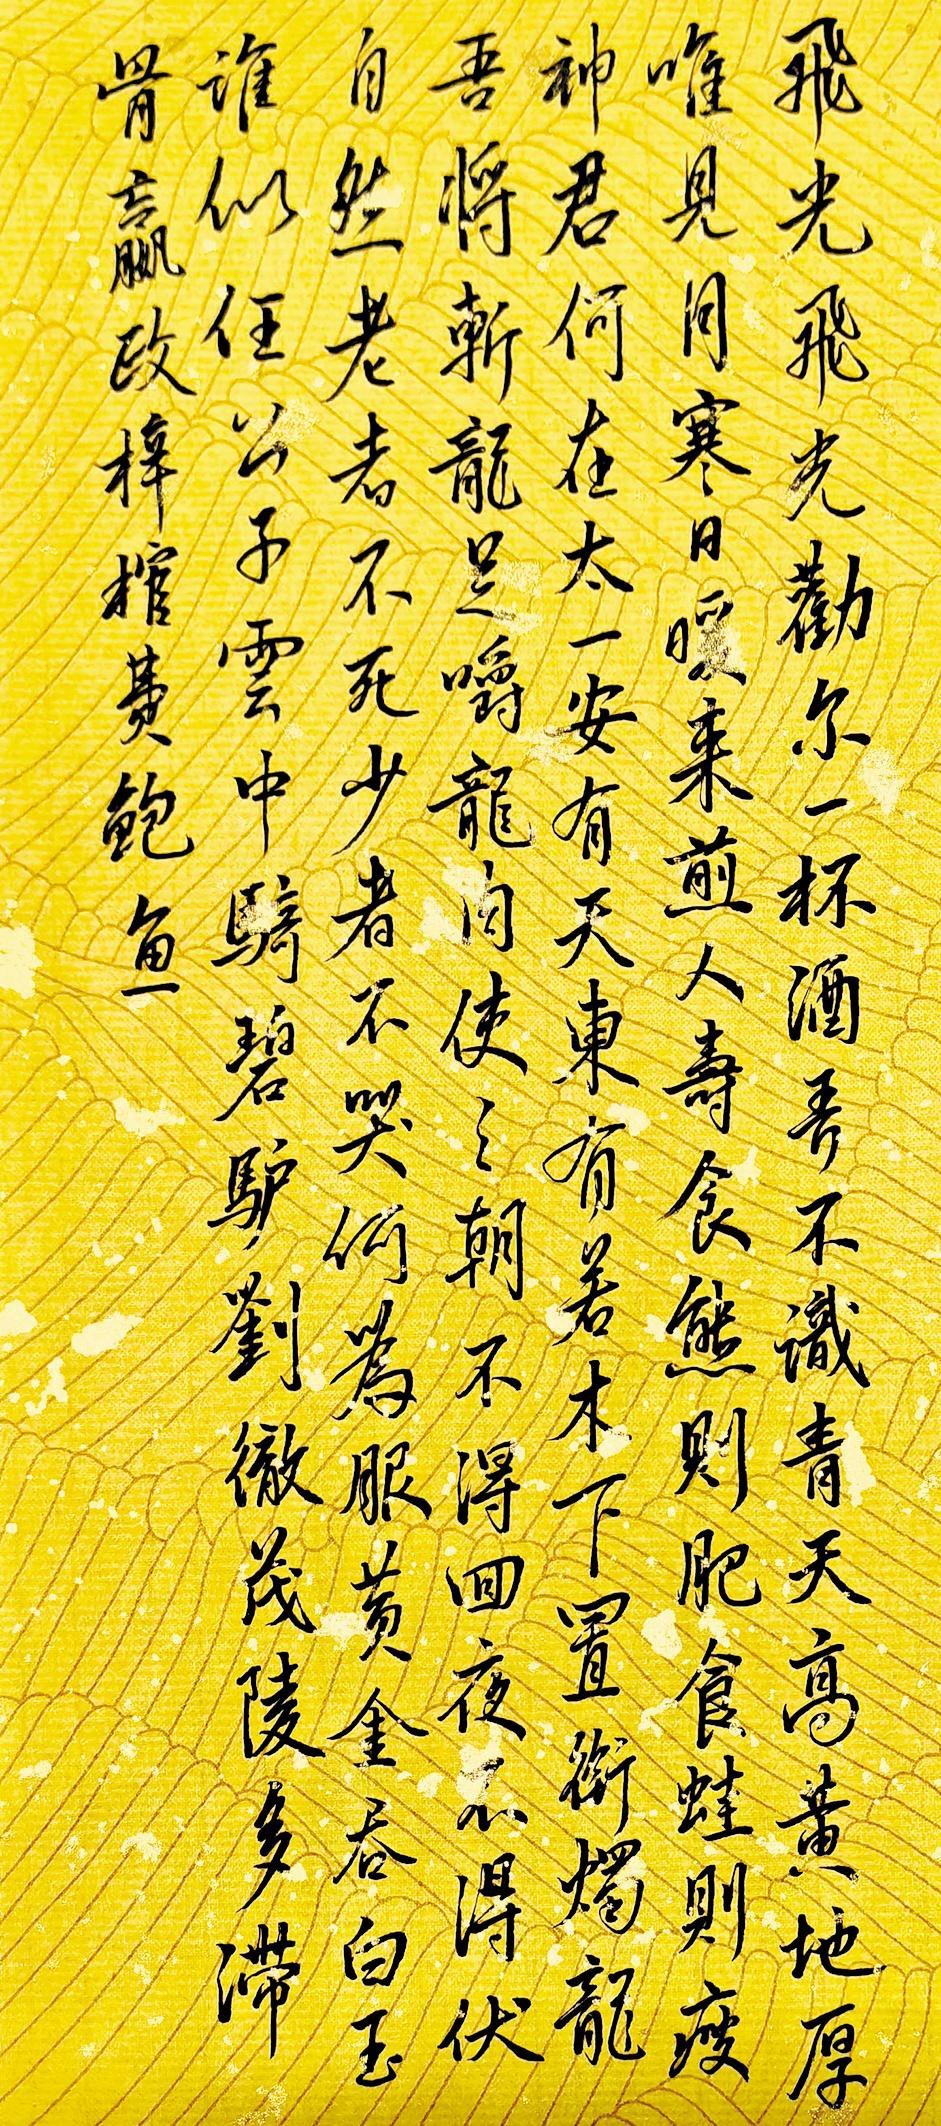 飛光飛光勸尔一杯酒吾不識青天高黃地厚
唯見月寒日暖来煎人壽食熊則肥食蛙則瘦
神君何在太一安有天東有若木下置銜燭龍
吾將斬龍足嚼龍肉使之朝不得回夜不得伏
自然老者不死少者不哭何為服黃金吞白玉
誰似任公子雲中騎碧驴劉徹茂陵多滞
骨嬴政梓棺費鲍鱼